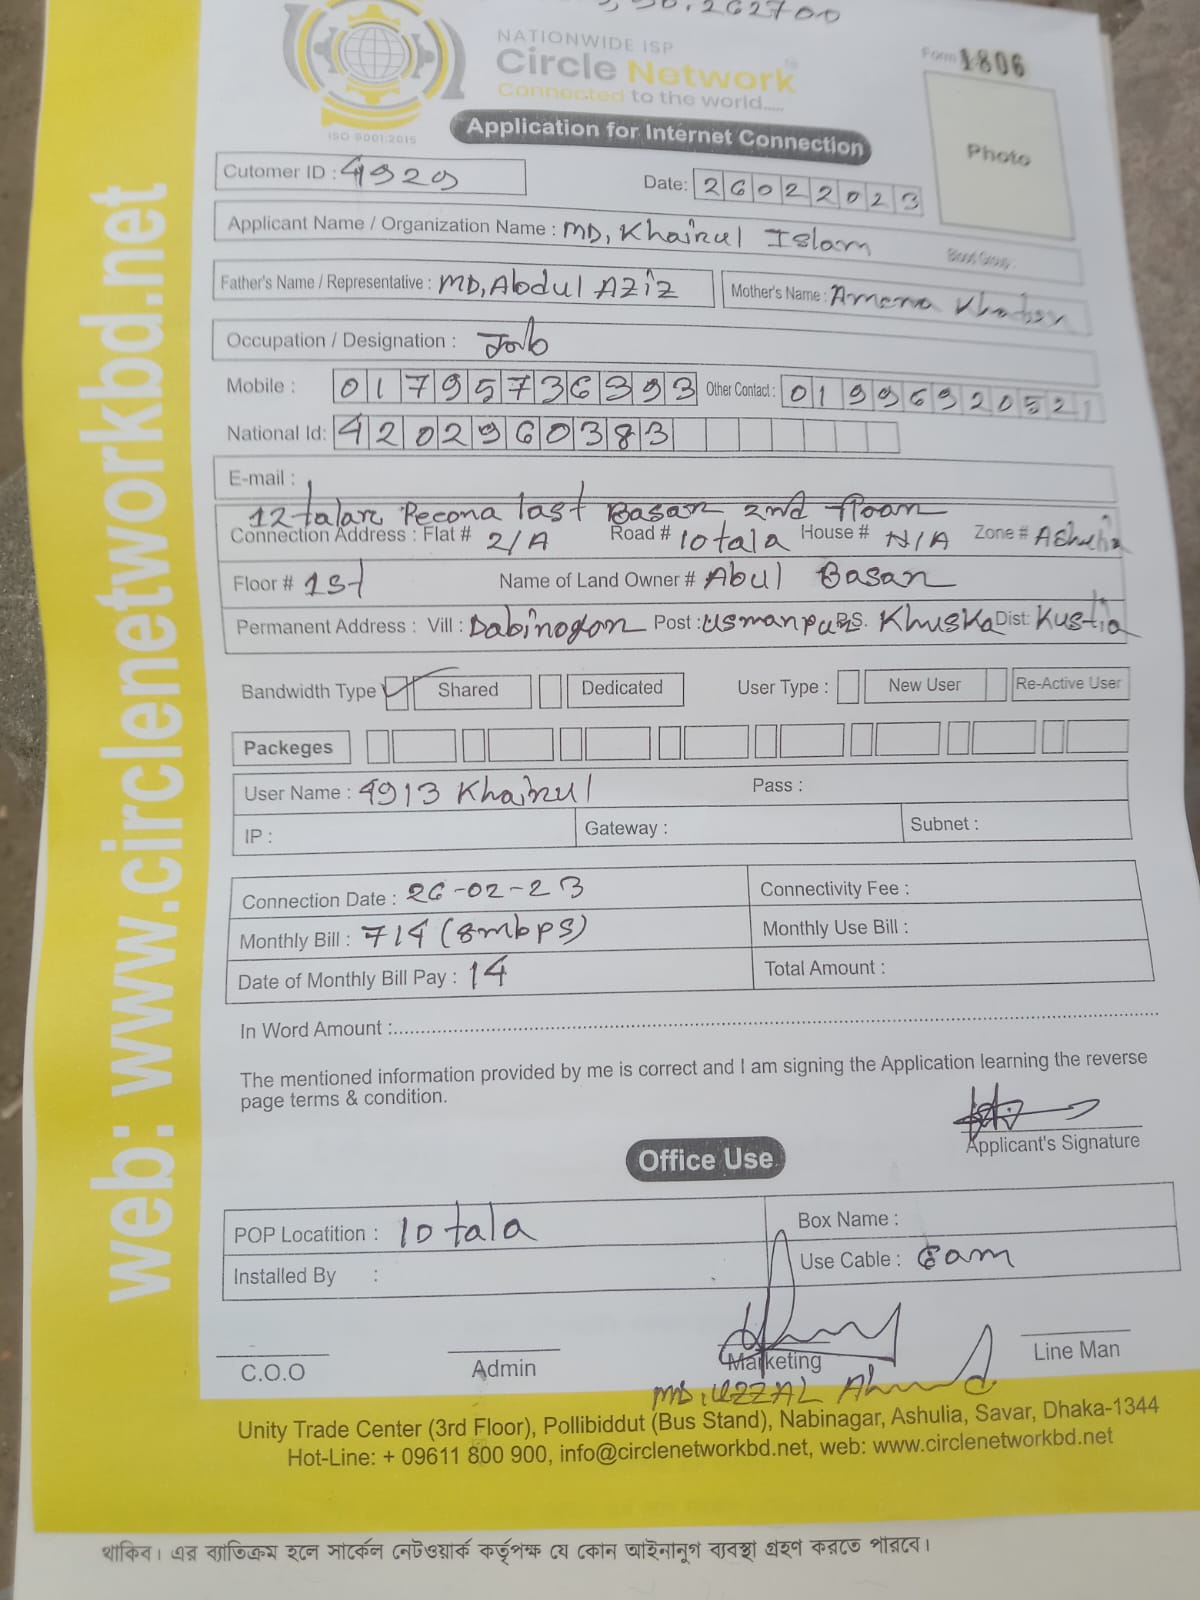 NATIONWIDE ISP
Circle Network
Connected to the world.....
ISO 9001:2015
Form 1806
Application for Internet Connection
Photo
Cutomer ID : 4929
Date: 26022023
Applicant Name / Organization Name : MD, Khairul Islam
Blood Group :
Father's Name / Representative : MD, Abdul AZiz Mother's Name : Amena Khatun
Occupation / Designation : Job
Mobile : 01795736393 Other Contact : 01996920521
National Id: 4202960383
E-mail :
12 talar Pecona last Basar 2nd floor
Connection Address : Flat # 2/A Road # 10 tala House # N/A Zone # Ashulia
Floor # 1st Name of Land Owner # Abul Basar
Permanent Address : Vill : Dabinogor Post : Usmanpur P.S. Khuska Dist: Kustia
Bandwidth Type Shared Dedicated User Type : New User Re-Active User
Packeges
User Name : 4913 Khairul Pass :
IP : Gateway : Subnet :
Connection Date : 26-02-23 Connectivity Fee :
Monthly Bill : 714 (8mbps) Monthly Use Bill :
Date of Monthly Bill Pay : 14 Total Amount :
In Word Amount :
The mentioned information provided by me is correct and I am signing the Application learning the reverse
page terms & condition.
Applicant's Signature
Office Use
POP Locatition : 10 tala Box Name :
Installed By : Use Cable :
C.O.O Admin Marketing Line Man
MD: UZZAL Ahmed
Unity Trade Center (3rd Floor), Pollibiddut (Bus Stand), Nabinagar, Ashulia, Savar, Dhaka-1344
Hot-Line: + 09611 800 900, info@circlenetworkbd.net, web: www.circlenetworkbd.net
থাকিব। এর ব্যাতিক্রম হলে সার্কেল নেটওয়ার্ক কর্তৃপক্ষ যে কোন আইনানুগ ব্যবস্থা গ্রহণ করতে পারবে।
web: www.circlenetworkbd.net